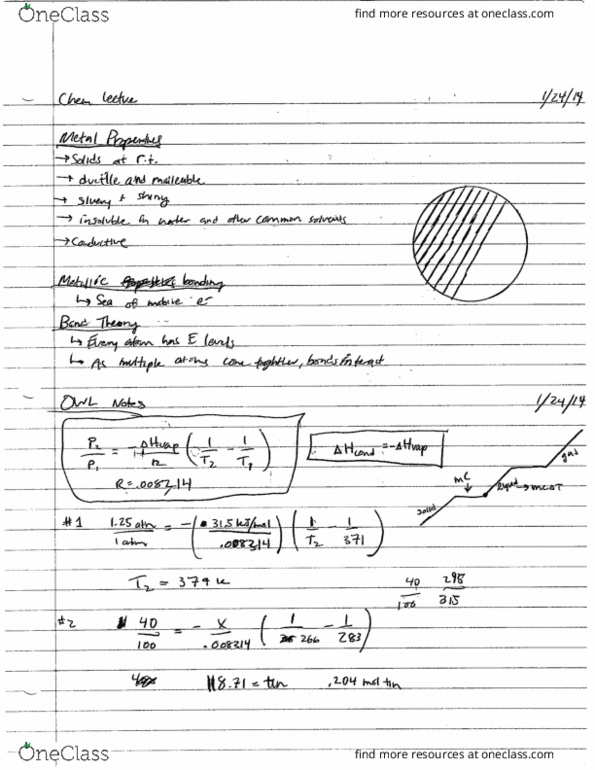 OneClass find more resources at oneclass.com
Chem Lecture 1/24/14
Metal Properties
→ Solids at r.t.
→ ductile and malleable
→ silvery + shiny
→ insoluble in water and other common solvents
→ Conductive
Metallic bonding
↳ Sea of mobile e-
Band Theory
↳ Every atom has E levels
↳ As multiple atoms come together, bands interact
OWL Notes 1/24/14
P₂/P₁ = -ΔHvap/R (1/T₂ - 1/T₁)
R = .008314
ΔHcond = -ΔHvap
solid
mC
liquid → mCΔT
gas
#1 1.25 atm/1 atm = -(31.5 kJ/mol/.008314) (1/T₂ - 1/371)
T₂ = 374 K
40/100 298/315
#2 40/100 = -x/.008314 (1/266 - 1/283)
118.71 = tin .204 mol tin
OneClass find more resources at oneclass.com